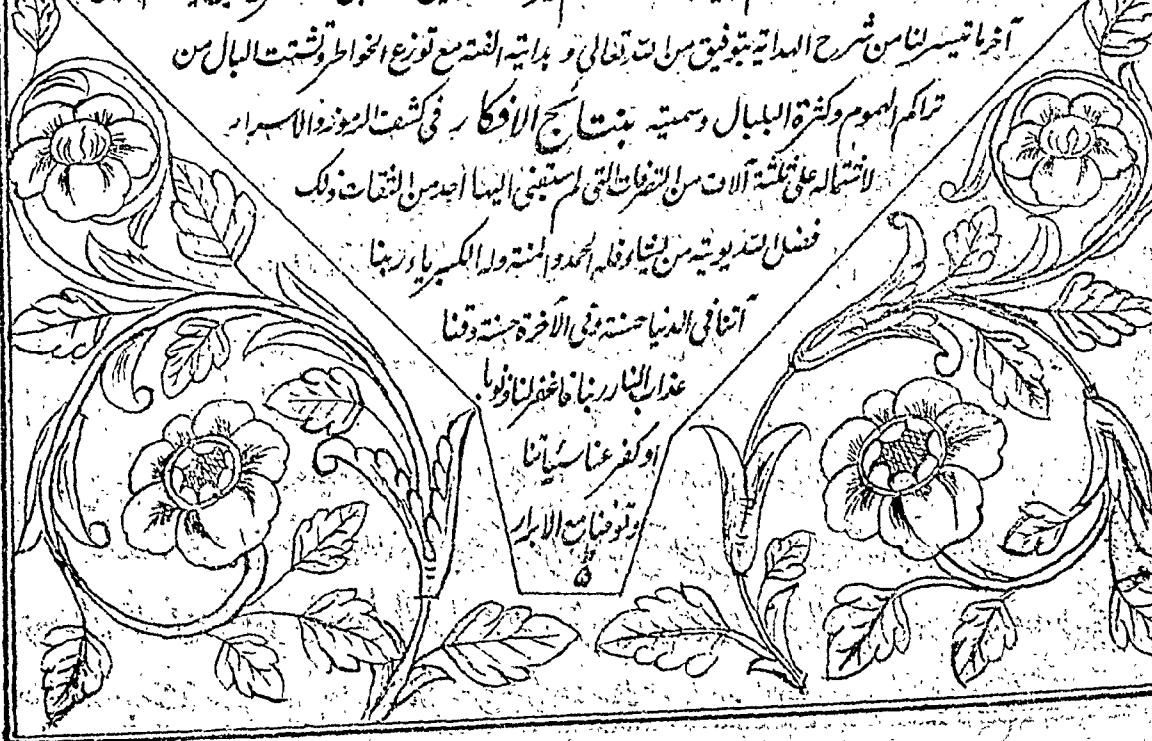 آخر ما تيسر لنا من شرح الهداية بتوفيق من الله تعالى و بداية الفتنة مع توزع الخواطر وتشتت البال من
تراكم الهموم وكثرة البلبال وسميته بنتائج الافكار فى كشف الرموز والاسرار
لاشتماله على ثلثة آلاف من التصرفات التى لم يسبقنى اليها احد من الثقات ذلك
فضل الله يوتيه من يشاء فله الحمد والمنة وله الكبرياء ربنا
آتنا فى الدنيا حسنة وفى الآخرة حسنة وقنا
عذاب النار ربنا فاغفر لنا ذنوبنا
وكفر عنا سيئاتنا
وتوفنا مع الابرار